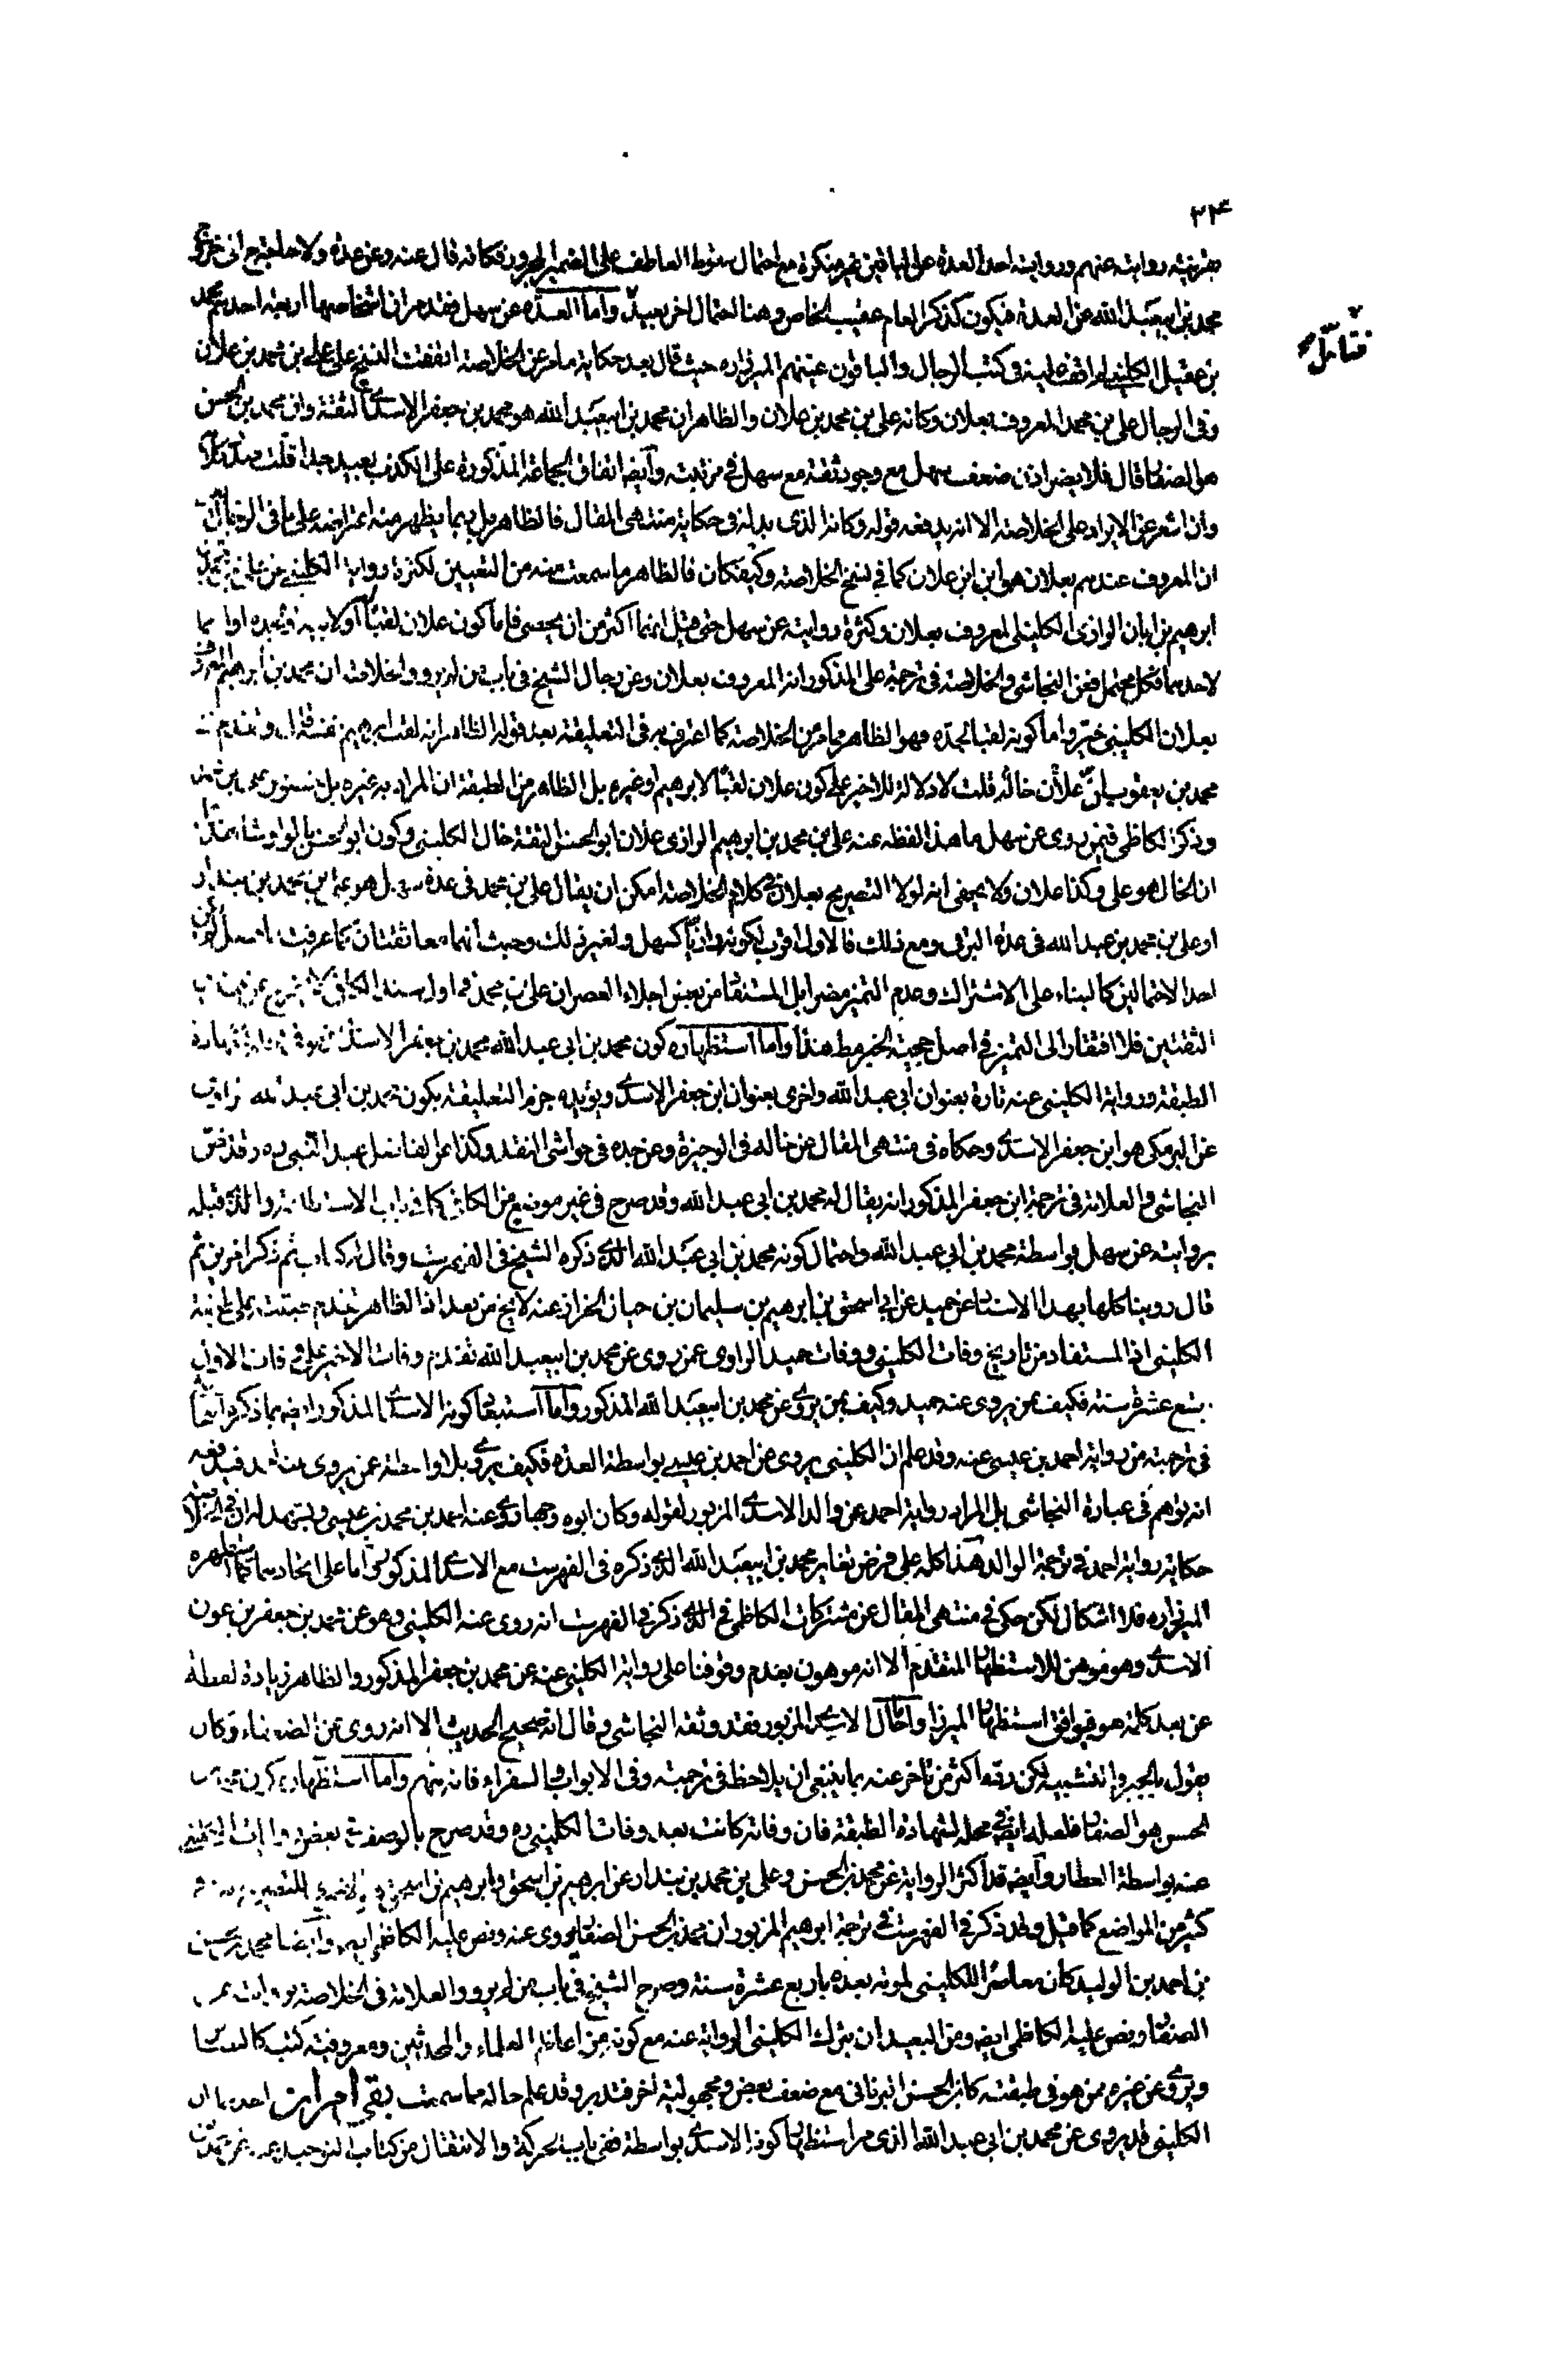 ٢٣
بقرينة روايته عنهم ورواية احد العدة عن الباقين غير منكرة مع احتمال سقوط العاطف على الضمير المجرور فكانه قال عنه وعن عدة ولا حاجة ح الى خروج
محمد بن ابيعبد الله عن العدة فيكون كذكر العام عقيب الخاص وهنا احتمال اخر بعيد واما العدة عن سهل فقد مر ان اشخاصها اربعة احدهم محمد
فتامل
بن عقيل الكليني لم اقف عليه في كتب الرجال والباقون عينهم الميرزا ره حيث قال بعد حكاية ما مر عن الخلاصة اتفقت النسخ على علي بن محمد بن علان
وفي الرجال علي بن محمد المعروف بعلان وكانه علي بن محمد بن علان والظاهر ان محمد بن ابيعبد الله هو محمد بن جعفر الاسدي الثقة وان محمد بن الحسن
هو الصفار قال فلا يضر اذن ضعف سهل مع وجود ثقة مع سهل في مرتبته وايضا اتفاق الجماعة المذكورة على الكذب بعيد جدا قلت
وان اشعر عن الايراد على الخلاصة الا انه يدفعه قوله وكانه الذي بدله في حكاية منتهى المقال فالظاهر بل ربما يظهر منه اعتراضه على ما في الرجال
ان المعروف عندهم بعلان هو ابن ابن علان كما في نسخ الخلاصة وكيف كان فالظاهر ما سمعت منه من التعيين لكثرة رواية الكليني عن علي بن محمد بن
ابرهيم بن ابان الرازي الكليني المعروف بعلان وكثرة روايته عن سهل حتى قيل انها اكثر من ان يحصى فاما كون علان لقبا له او لابيه او جده او لهما
لاحدهما فكل محتمل فعن النجاشي والخلاصة في ترجمة علي المذكور انه المعروف بعلان وعن رجال الشيخ في باب من لم يرو والخلاصة ان محمد بن ابرهيم المعروف
بعلان الكليني خير واما كونه لقبا لجده فهو الظاهر مما مر عن الخلاصة كما اعترف به في التعليقة بعد قوله الظاهر انه لقب ابرهيم نفسه قال وتقدم في
محمد بن يعقوب ان علان خاله قلت لا دلالة للاخير على كون علان لقبا لابرهيم او غيره بل الظاهر من الطبقة ان المراد به غيره بل
وذكر الكاظمي فيمن روى عن سهل ما هذا لفظه عنه علي بن محمد بن ابرهيم الرازي علان ابو الحسن الثقة خال الكليني وكون ابو الحسن بالواو شاهد
ان الخال هو علي وكذا علان ولا يخفى انه لولا التصريح بعلان في كلام الخلاصة امكن ان يقال علي بن محمد في عدة سهل هو علي بن محمد بن بندار
او علي بن محمد بن عبد الله في عدة البرقي ومع ذلك فالاول اقرب لكونه رازيا كسهل ولغير ذلك وحيث انهما معا ثقتان كما عرفت
احد الاحتمالين كالبناء على الاشتراك وعدم التميز مضرا بل المستفاد من بعض اجلاء العصر ان علي بن محمد في اول سند الكافي
الثقتين فلا افتقار الى التميز في اصل حجية الخبر هذا واما استظهاره كون محمد بن ابي عبد الله محمد بن جعفر الاسدي
الطبقة ورواية الكليني عنه تارة بعنوان ابي عبد الله واخرى بعنوان ابن جعفر الاسدي ويؤيده جزم التعليقة بكون محمد بن ابي عبد الله
عن البرمكي هو ابن جعفر الاسدي وحكاه في منتهى المقال عن خاله في الوجيزة وعن جده في حواشي النقد وكذا عن الفاضل عبد النبي ره وقد نص
النجاشي والعلامة في ترجمة ابن جعفر المذكور انه يقال له محمد بن ابي عبد الله وقد صرح في غير موضع من الكافي كما في باب الاستطاعة والذي قبله
بروايته عن سهل بواسطة محمد بن ابي عبد الله واحتمال كونه محمد بن ابي عبد الله الذي ذكره الشيخ في الفهرست وقال له كتاب ثم ذكر اخرين ثم
قال روينا كلها بهذا الاسناد عن حميد عن ابي اسحق بن ابرهيم بن سليمان بن حيان الخزاز عنه لا يخ من بعد اذ الظاهر تقدم طبقته على طبقة
الكليني اذ المستفاد من تاريخ وفات الكليني ووفات حميد الراوي عمن روى عن محمد بن ابيعبد الله تقدم وفات الاخير على وفات الاول
بتسع عشرة سنة فكيف بمن يروي عنه حميد وكيف بمن يروي عن محمد بن ابيعبد الله المذكور واما استبعاد كونه الاسدي المذكور ايضا بما ذكر
في ترجمته من رواية احمد بن عيسى عنه وقد علم ان الكليني يروي عن احمد بن عيسى بواسطة العدة فكيف يروي بلا واسطة عمن يروي عنه احمد فيدفعه
انه توهم في عبارة النجاشي بل المراد رواية احمد عن والد الاسدي المزبور لقوله وكان ابوه وجها روى عنه احمد بن محمد بن عيسى ويشهد له
حكاية رواية احمد في ترجمة الوالد هذا كله على فرض تغاير محمد بن ابيعبد الله الذي ذكره في الفهرست مع الاسدي المذكور واما على اتحادهما كما استظهره
الميرزا ره فلا اشكال لكن حكى في منتهى المقال عن مشتركات الكاظمي في الذي ذكر في الفهرست انه روى عنه الكليني وهو عن محمد بن جعفر بن عون
الاسدي وهو موهن للاستظهار المتقدم الا انه موهون بعدم وقوفنا على رواية الكليني عنه عن محمد بن جعفر المذكور والظاهر زيادة لفظة
عن بعد كلمة هو فيوافق استظهار الميرزا واما حال الاسدي المزبور فقد وثقه النجاشي وقال انه صحيح الحديث الا انه روى عن الضعفاء وكان
يقول بالجبر والتشبيه لكن رده اكثر من تاخر عنه بما ينبغي ان يلاحظ في ترجمته وفي الابواب والسفراء فانه منهم واما استظهاره كون محمد بن
الحسن هو الصفار فلعله ايضا في محله لشهادة الطبقة فان وفاته كانت بعد وفات الكليني ره وقد صرح بالوصف في بعض روايات الكليني
عنه بواسطة العطار وايضا قد اكثر الرواية عن محمد بن الحسن وعلي بن محمد بن بندار عن ابرهيم بن اسحق وابرهيم بن اسحق
كثير من المواضع كما قيل وقد ذكر في الفهرست في ترجمة ابرهيم المزبور ان محمد بن الحسن الصفار روى عنه ونص عليه الكاظمي ايضا وايضا محمد بن الحسن
بن احمد بن الوليد كان معاصرا للكليني لموته بعده باربع عشرة سنة وصرح الشيخ في باب من لم يرو والعلامة في الخلاصة بروايته عن
الصفار ونص عليه الكاظمي ايضا ومن البعيد ان يترك الكليني الرواية عنه مع كونه من اعاظم العلماء والمحدثين ومعروفية كتبه
ويروي عن غيره ممن هو في طبقته كابن الحسن البرناني مع ضعف بعض ومجهولية اخر فتدبر وقد علم حاله مما سمعت بقي امران احدهما ان
الكليني قد يروي عن محمد بن ابي عبد الله الذي مر استظهار كونه الاسدي بواسطة ففي باب الحركة والانتقال من كتاب التوحيد